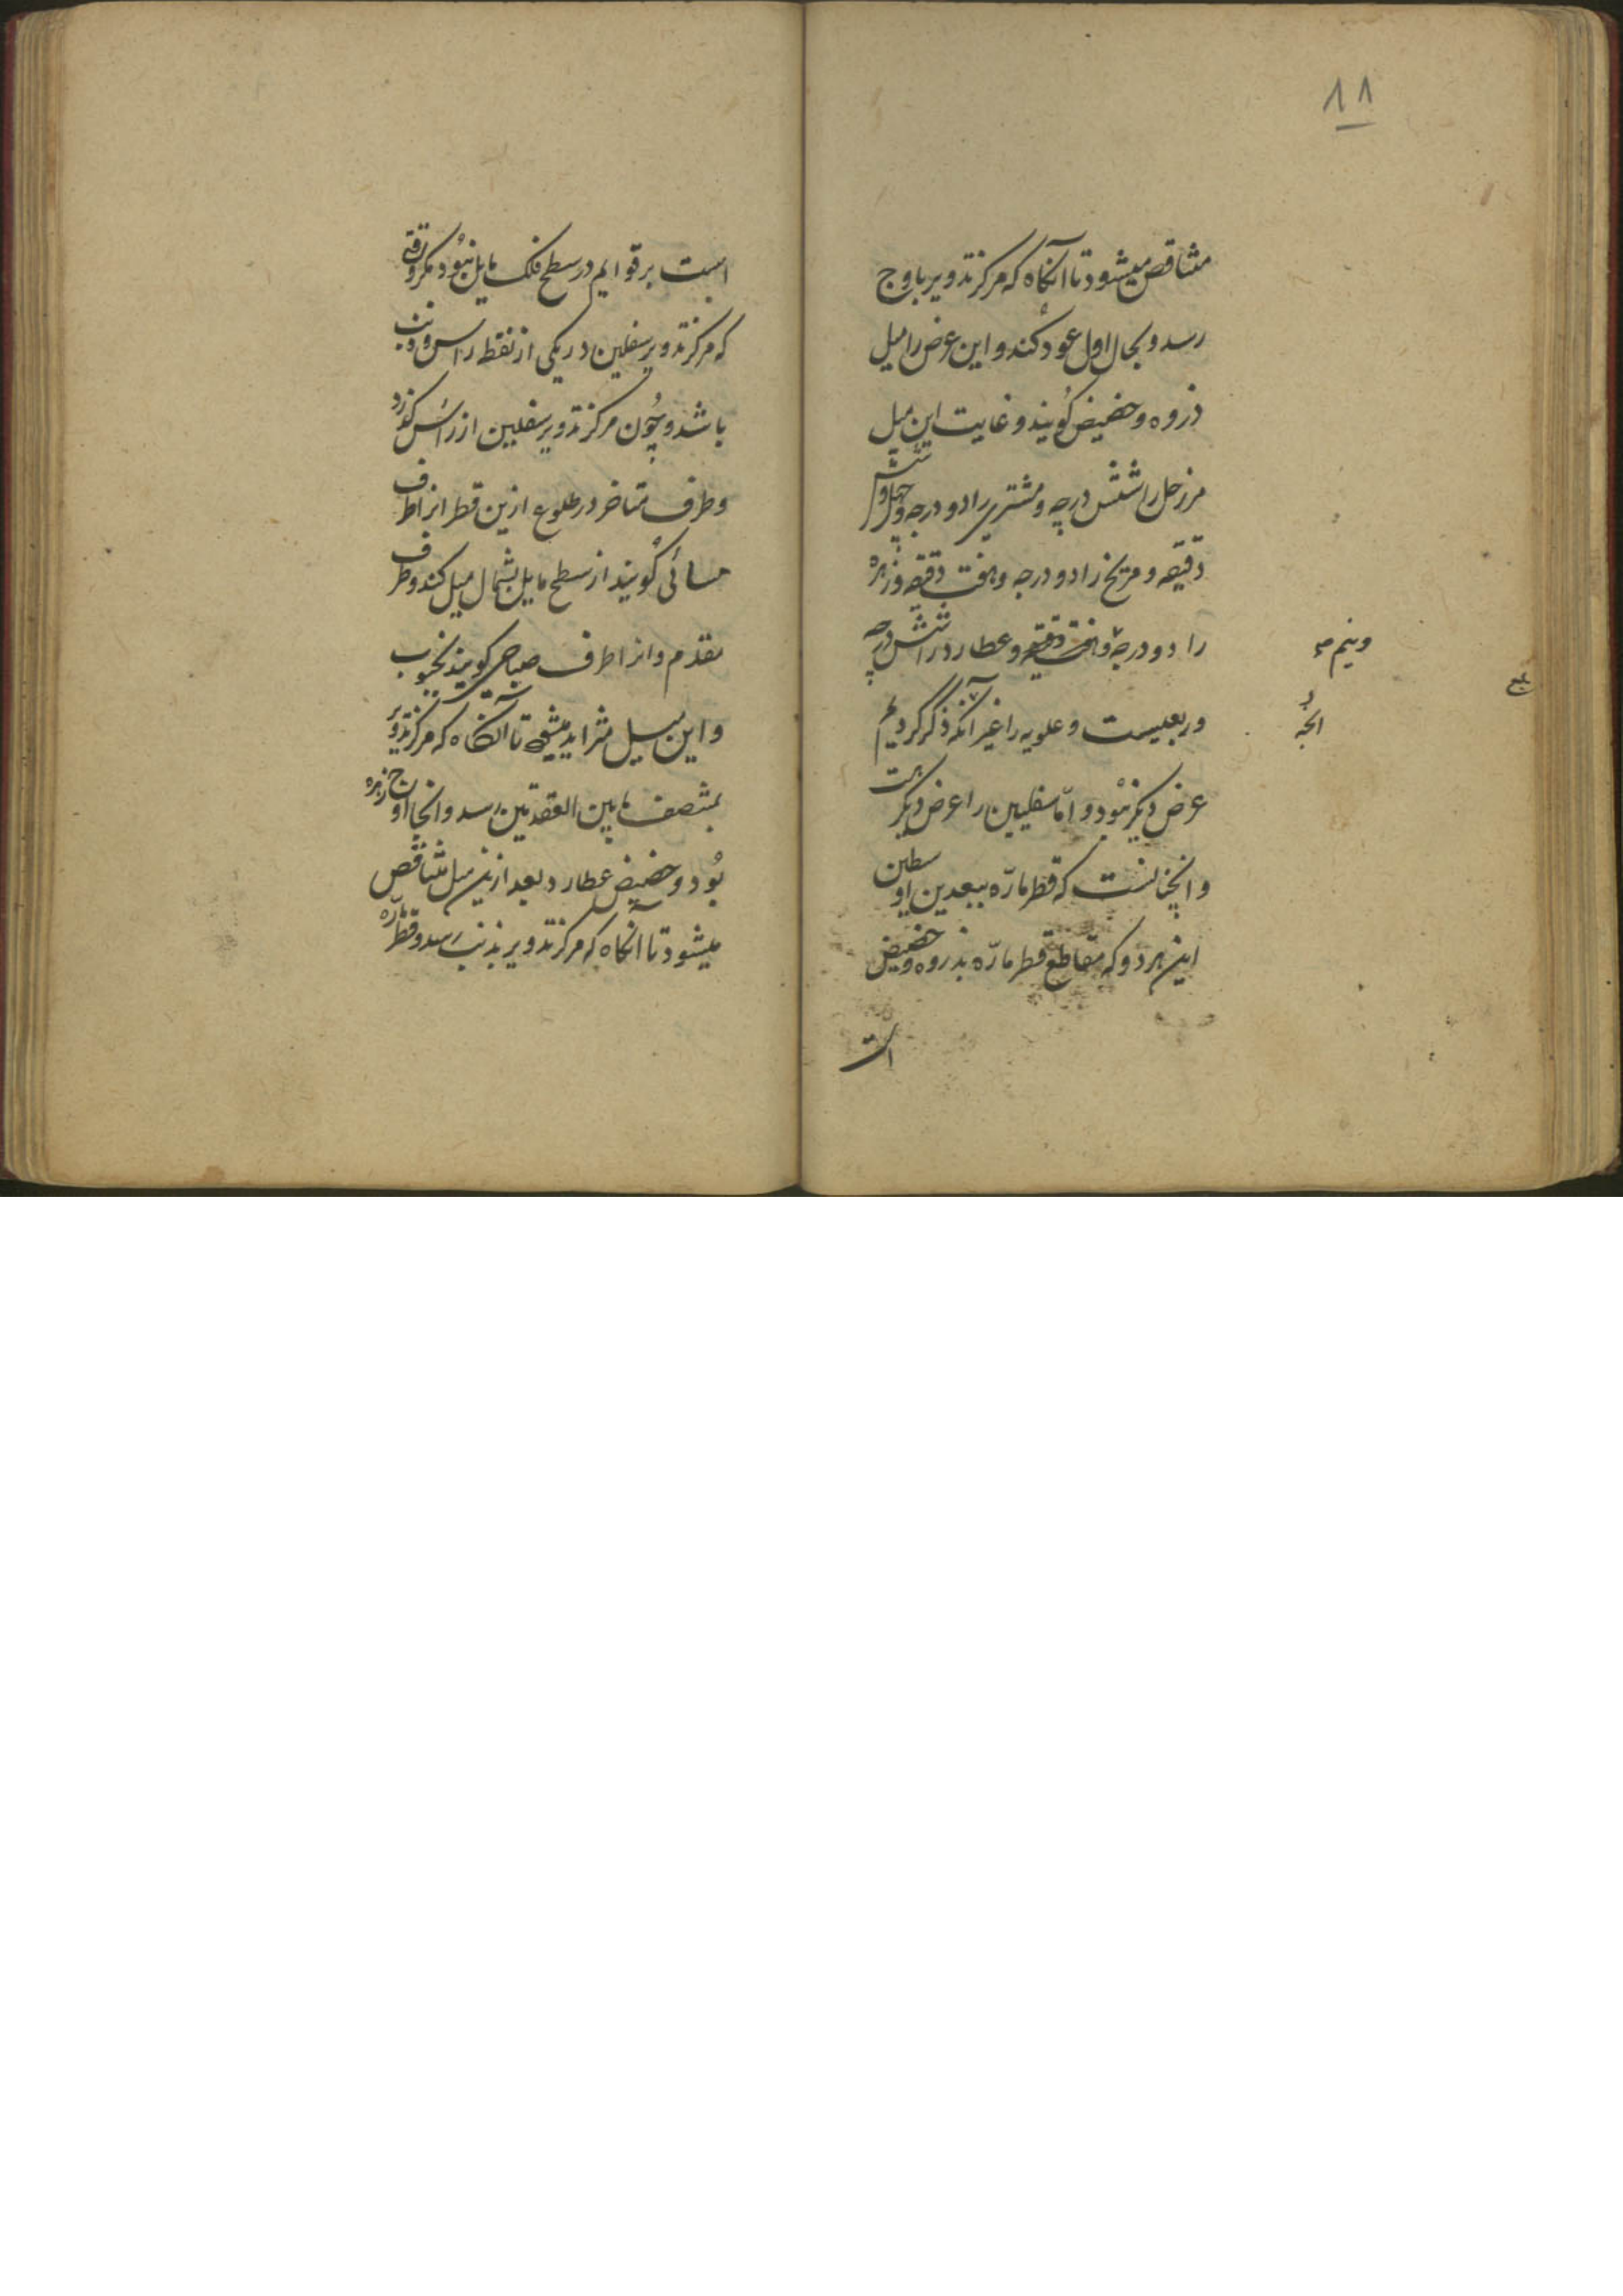 ۱۸
متناقص میشود تا آنگاه که مرکز تدویر باوج
رسد و بحال اول عود کند و این عرض را میل
ذروه و حضیض گویند و غایت این میل
مر زحل را شش درجه و مشتری را دو درجه و چهل و شش
دقیقه و مریخ را دو درجه و هفت دقیقه و زهره
را دو درجه و هفت دقیقه و عطارد را شش درجه
و نیم
و ربعیست و علویه را غیر آنکه ذکر کردیم
عرض دیگر نبود و امّا سفلیین را عرض دیگر است
و آنچنانست که قطر مارّه ببعدین اوسطین
این هر دو که مقاطع قطر مارّه بذروه و حضیض
است
است بر قوایم در سطح فلک مایل نبود مگر وقتی
که مرکز تدویر سفلیین در یکی از نقطه راس و ذنب
باشد و چون مرکز تدویر سفلیین از راس گذرد
و طرف متاخر در طلوع ازین قطر انرا طرف
مسائی گویند از سطح مایل بشمال میل کند و طرف
مقدم و انرا طرف صباحی گویند بجنوب
و این میل متزاید میشود تا آنگاه که مرکز تدویر
بمنتصف مابین العقدتین رسد و انجا اوج زهره
بود و حضیض عطارد و بعد ازین میل متناقص
میشود تا آنگاه که مرکز تدویر بذنب رسد و قطر مارّه